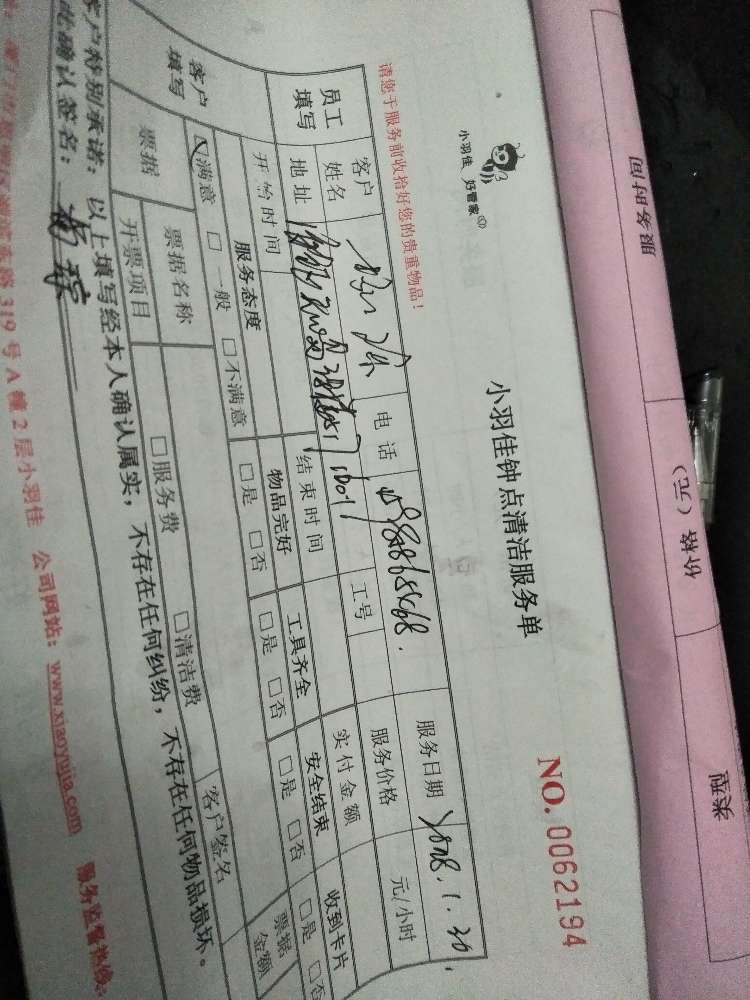 服务时间
价格（元）
类型
小羽佳 好管家
小羽佳钟点清洁服务单
NO. 0062194
请您于服务前收拾好您的贵重物品！
员工填写
客户姓名
电话
服务日期
.1.30.
地址
工号
服务价格
元/小时
开始时间
结束时间
实付金额
客户填写
服务态度
物品完好
工具齐全
安全结束
收到卡片
☑满意 □一般 □不满意
□是 □否
□是 □否
□是 □否
□是 □否
票据
票据名称
□服务费
□清洁费
票据金额
开票项目
客户签名
客户特别承诺：以上填写经本人确认属实，不存在任何纠纷，不存在任何物品损坏。
此确认签名：
319号A幢2层小羽佳 公司网站：www.xiaoyujia.com 服务监督热线：